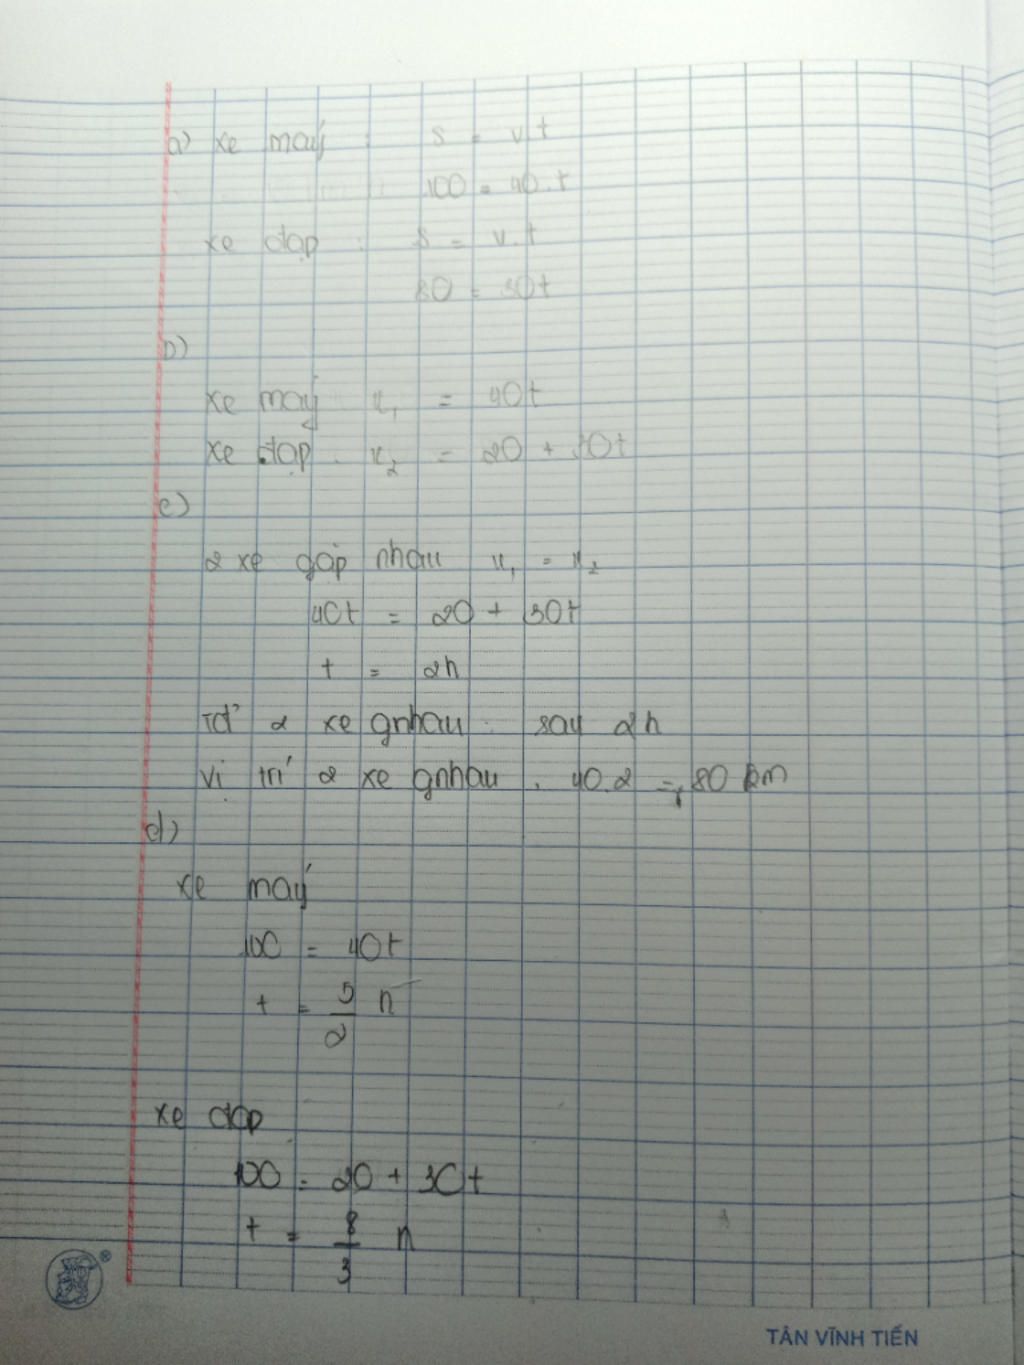 a) xe máy : s = v.t
100 = 40.t
xe đạp : s = v.t
80 = 30t
b)
xe máy x₁ = 40t
xe đạp . x₂ = 20 + 30t
c)
2 xe gặp nhau x₁ = x₂
40t = 20 + 30t
t = 2h
Tđ 2 xe gnhau : say 2h
vị trí 2 xe gnhau . 40.2 = 80 km
d)
xe máy
100 = 40t
t = 5/2 h
xe đạp
100 = 20 + 30t
t = 8/3 h
®
TÂN VĨNH TIẾN